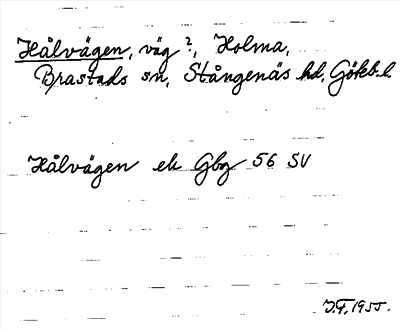 Hålvägen, väg?, Holma,
Brastads sn, Stångenäs hd, Göteb. l
Hålvägen ek Gbg 56 SV
J.F. 1955.